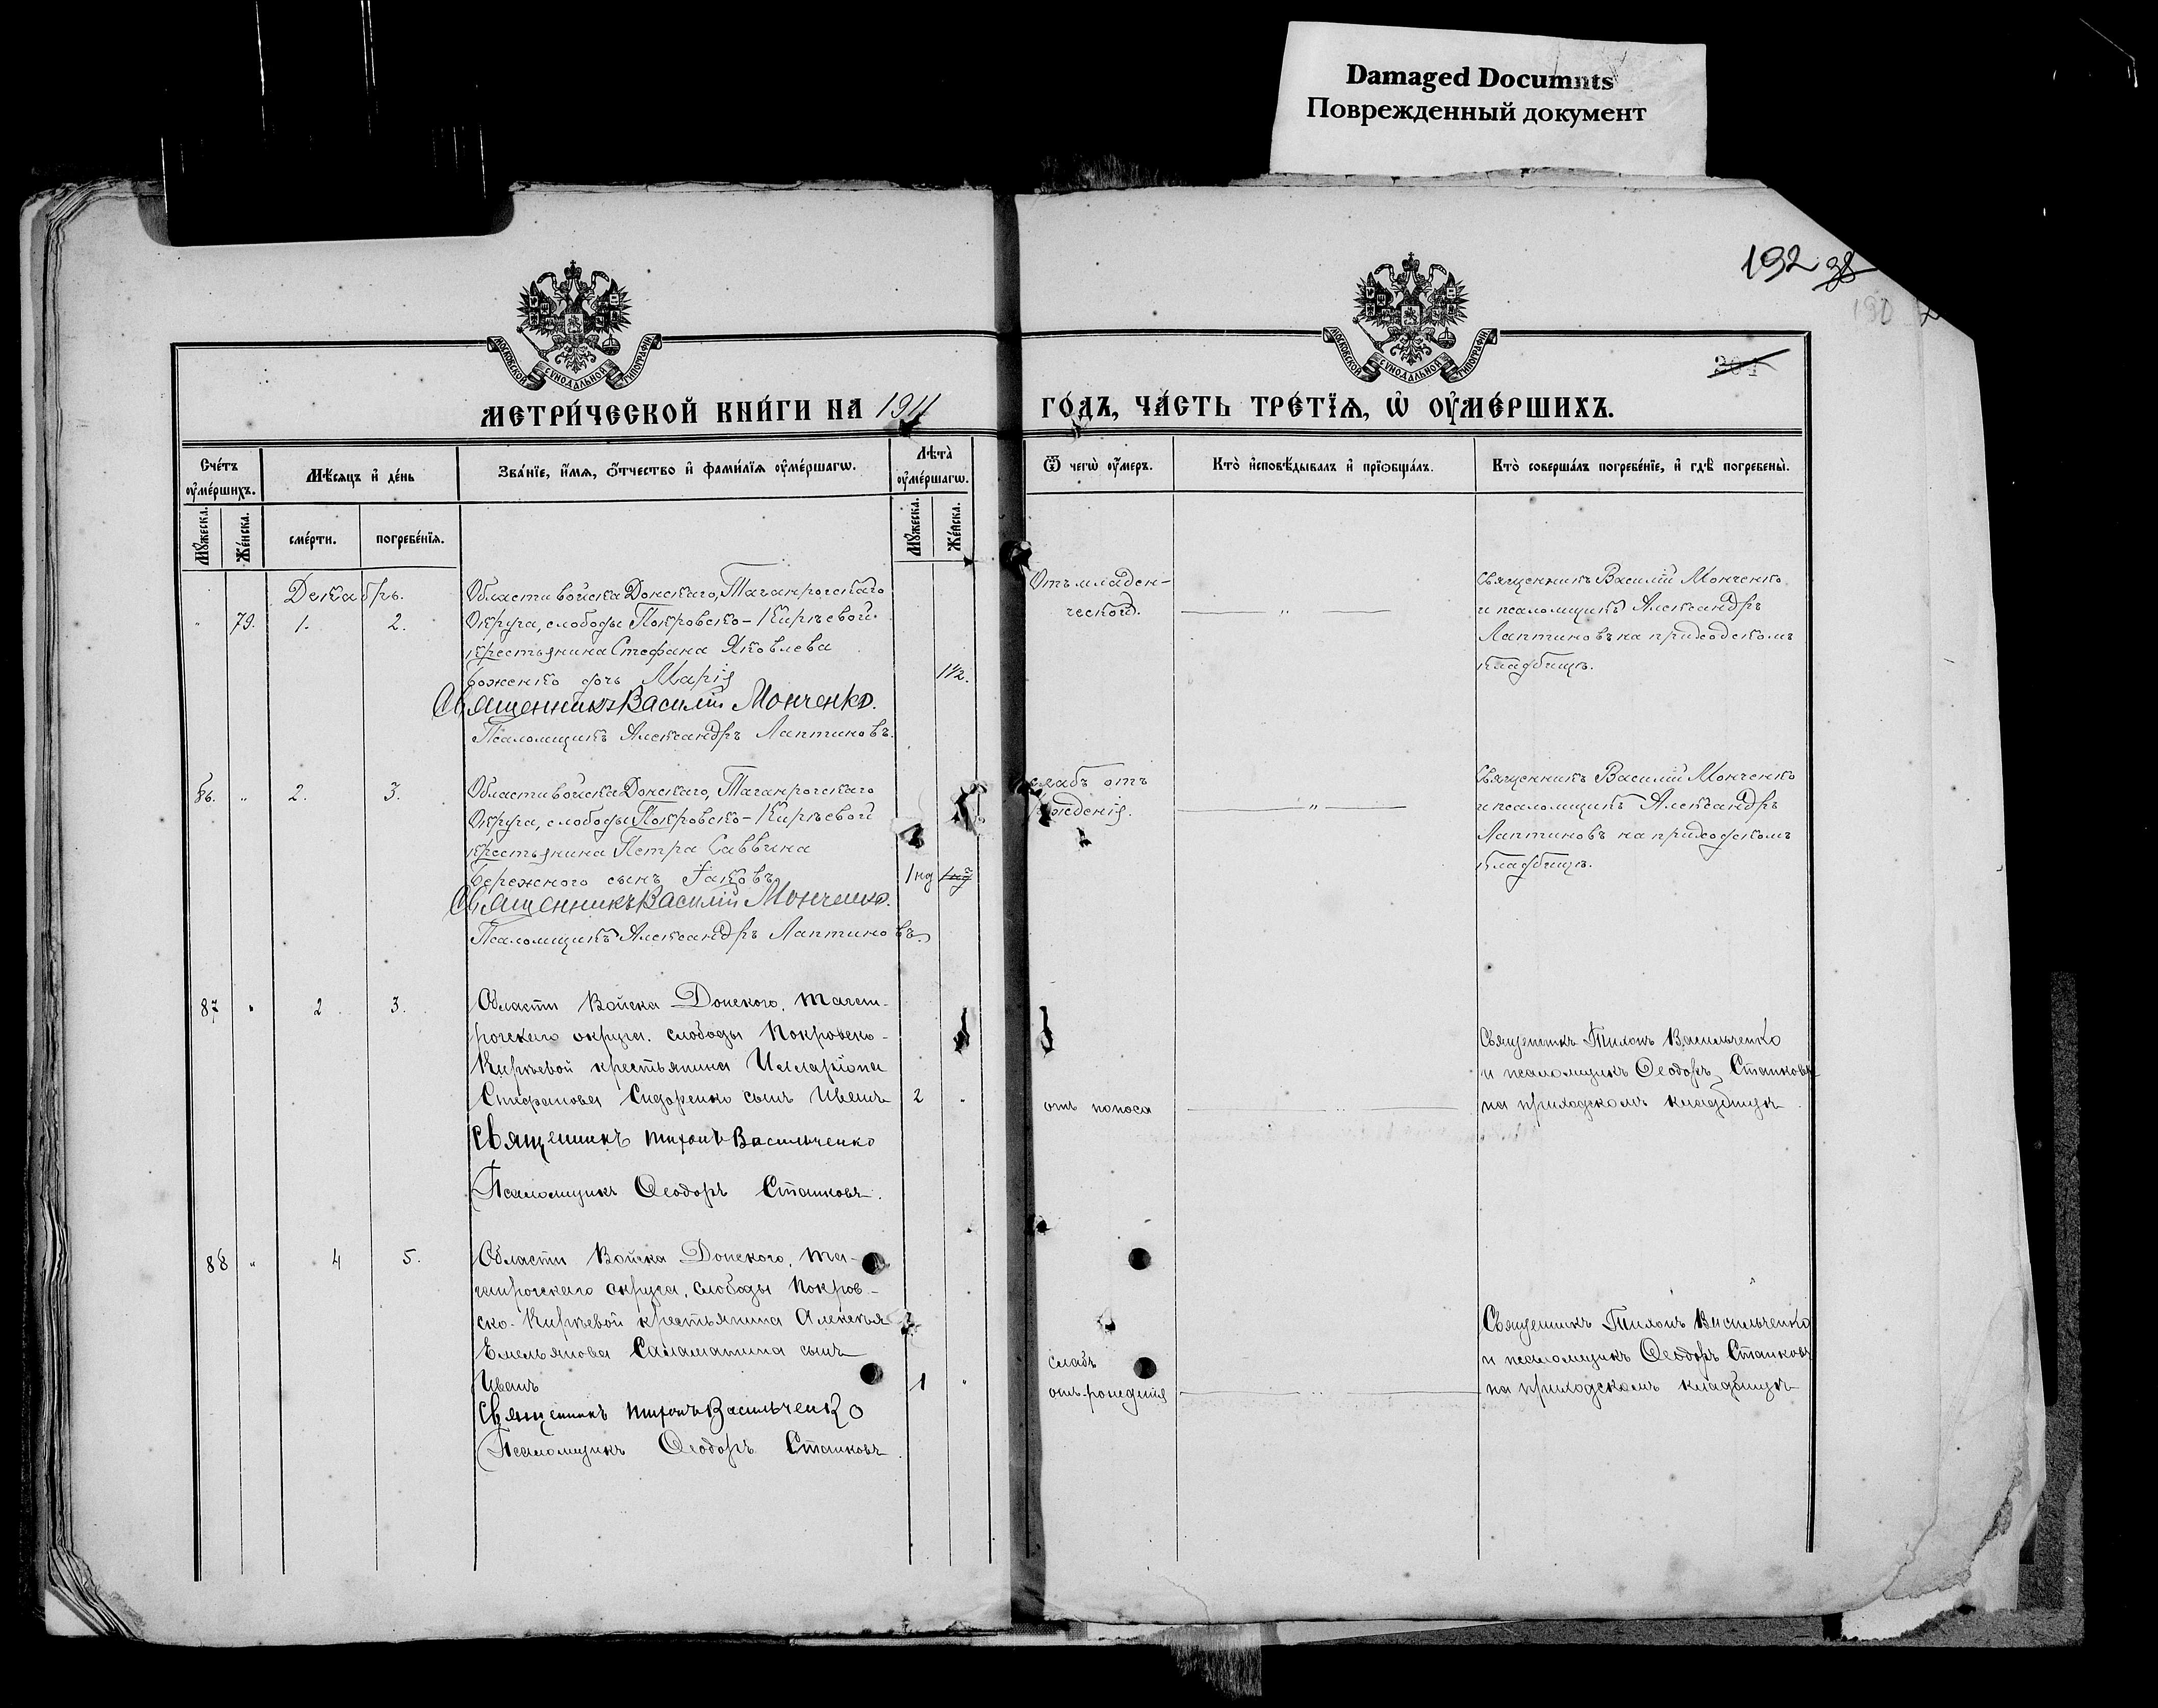 Damaged Documnts
Поврежденный документ
192 98
190
304
МОСКОВСКОЙ СѴНОДАЛЬНОЙ ТИПОГРАФІИ
МОСКОВСКОЙ СѴНОДАЛЬНОЙ ТИПОГРАФІИ
МЕТРИ́ЧЕСКОЙ КНИ́ГИ НА 1911 ГО́ДЪ, ЧА́СТЬ ТРЕ́ТЇѦ, Ѡ҆ ОУ҆МЕ́РШИХЪ.
Сче́тъ оу҆ме́ршихъ.
Мѣ́сяцъ и҆ де́нь
Зва́нїе, и҆́мѧ, ѻ҆́тчество и҆ фами́лїѧ оу҆ме́ршагѡ.
Лѣ̑та̀ оу҆ме́ршагѡ.
Ѿ чегѡ̀ оу҆́меръ.
Кто̀ и҆сповѣ́дывалъ и҆ прїѡбща́лъ.
Кто̀ соверша́лъ погребе́нїе, и҆ гдѣ̀ погребены̀.
Мꙋ́жеска.
Же́нска.
сме́рти.
погребе́нїѧ.
Мꙋ́жеска.
Же́нска.
Декабрь.
" 79. 1. 2.
Области войска Донскаго, Таганрогскаго
Округа, слободы Покровско-Киръевой
крестьянина Стефана Яковлева
Боженко дочь Марія
1 1/2.
Священникъ Василій Мончен­ко.
Псаломщикъ Александръ Лаптиновъ.
Отъ младен-
ческой.
"
Священникъ Василій Мончен­ко
и псаломщикъ Александръ
Лаптиновъ на приходскомъ
кладбищѣ.
86. " 2. 3.
Области войска Донскаго, Таганрогскаго
Округа, слободы Покровско-Киръевой
крестьянина Петра Саввина
Бережного сынъ Іаковъ
1 нд 1 нд
Священникъ Василій Мончен­ко.
Псаломщикъ Александръ Лаптиновъ.
слабъ отъ
рожденія.
"
Священникъ Василій Мончен­ко
и псаломщикъ Александръ
Лаптиновъ на приходскомъ
кладбищѣ.
87 " 2 3.
Области Войска Донского, Таган-
рогскаго округа. слободы Покровско-
Киръевой крестьянина Илларіона
Стефанова Сидоренко сынъ Иванъ
2 "
Священникъ Тихонъ Васильченко
Псаломщикъ Ѳеодоръ Сташковъ.
отъ поноса
"
Священникъ Тихонъ Васильченко
и псаломщикъ Ѳеодоръ Сташковъ
на приходскомъ кладбищѣ
88 " 4 5.
Области Войска Донского, Та-
ганрогскаго округа, слободы Покров-
ско-Киръевой крестьянина Алексѣя
Емельянова Саламатина сынъ
Иванъ
1 "
Священникъ Тихонъ Васильченко
Псаломщикъ Ѳеодоръ Сташковъ
слабъ
отъ рожденія
"
Священникъ Тихонъ Васильченко
и псаломщикъ Ѳеодоръ Сташковъ
на приходскомъ кладбищѣ